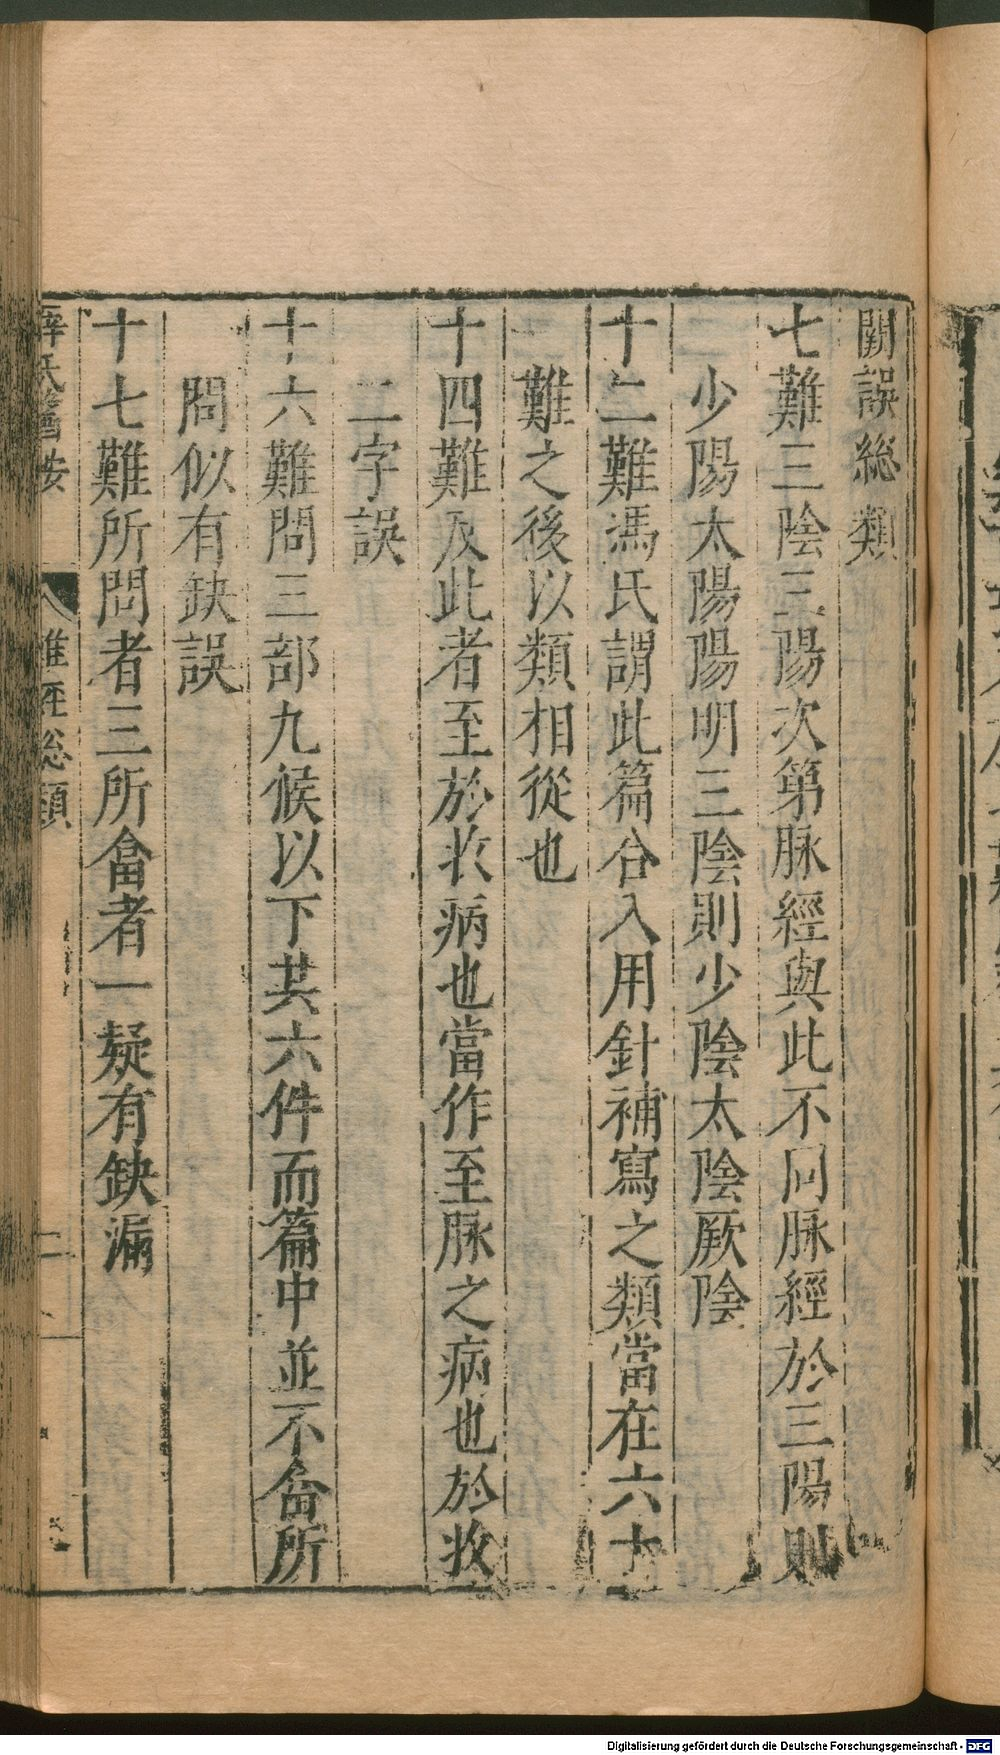 闕誤総類
七難三陰三陽次第脉經與此不同脉經於三陽則
少陽太陽陽明三陰則少陰太陰厥陰
十二難馮氏謂此篇合入用針補寫之類當在六十
難之後以類相從也
十四難反此者至於收病也當作至脉之病也於收
二字誤
十六難問三部九候以下共六件而篇中並不畣所
問似有缺誤
十七難所問者三所畣者一疑有缺漏
難經総類
二
Digitalisierung gefördert durch die Deutsche Forschungsgemeinschaft - DFG